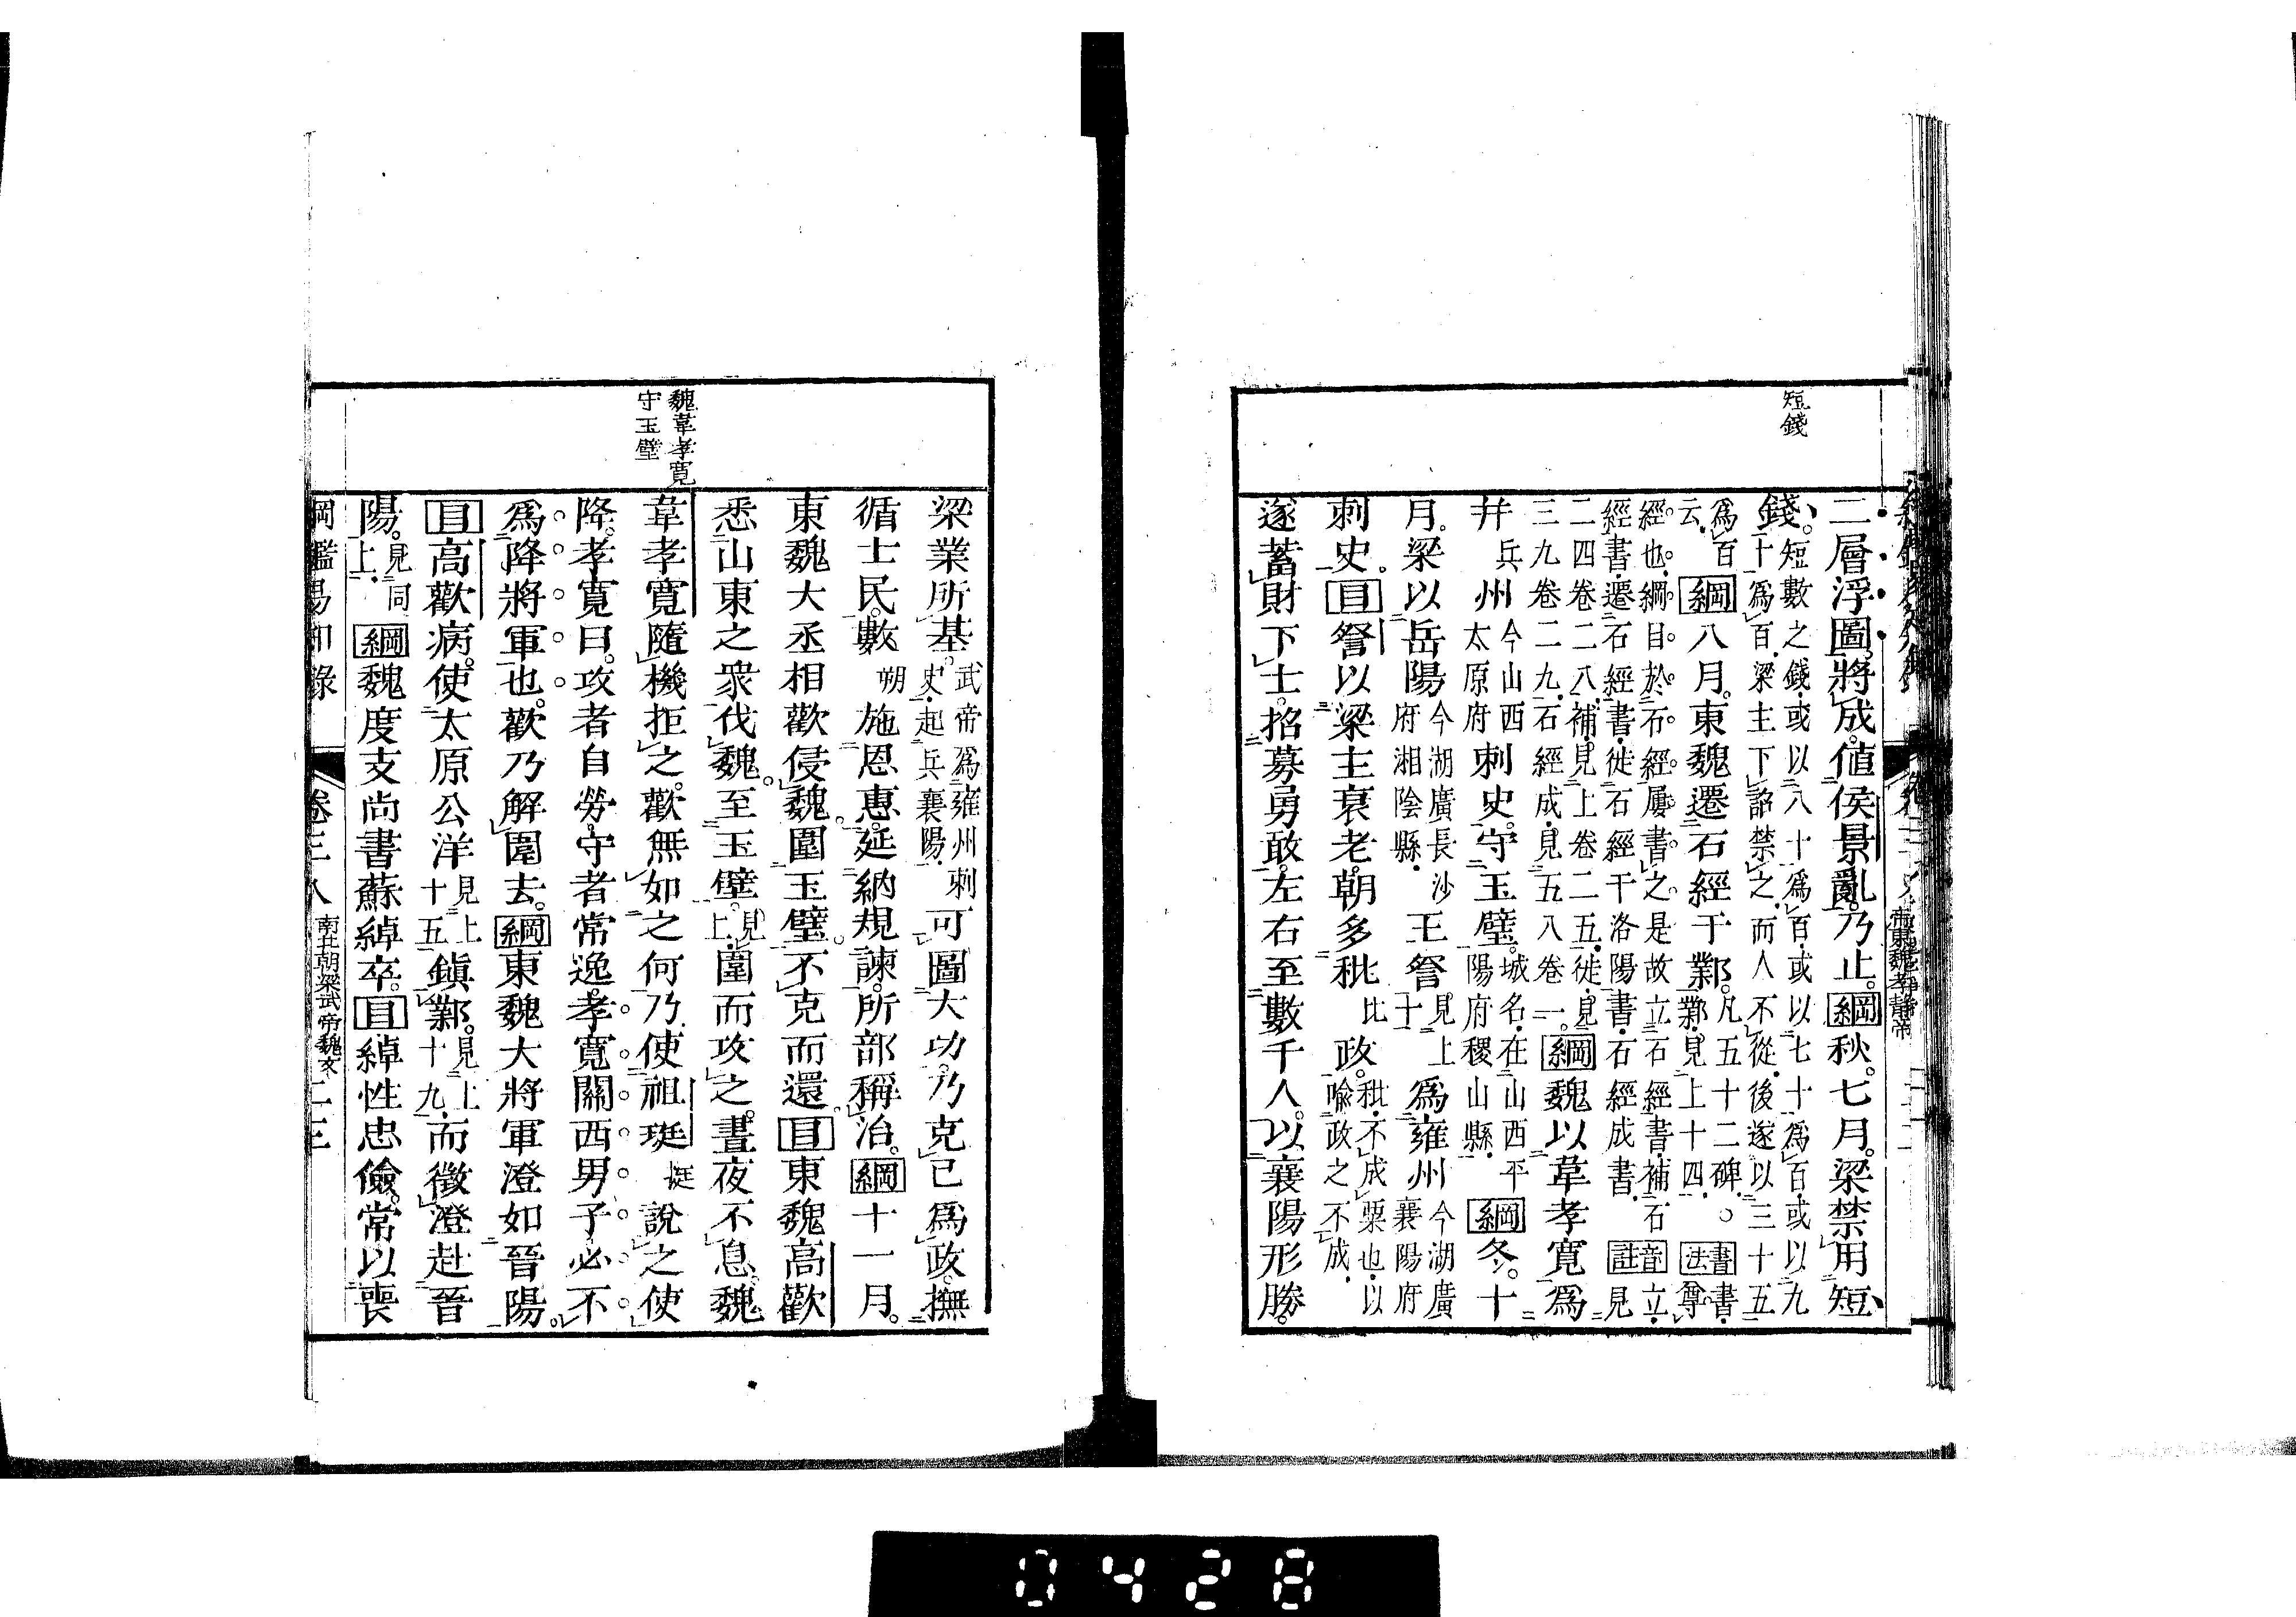 短錢
二層浮圖。將成。値侯景亂。乃止。綱秋。七月。梁禁用短
錢。短數之錢。或以八十爲百。或以七十爲百。或以九
十爲百。梁主下詔禁之。而人不從。後遂以三十五
爲百
云。綱八月。東魏遷石經于鄴。凡五十二碑。
鄴。見上十四。書法書。尊
經也。綱目。於石經。屢書之。是故立石經書。補石
經書。遷石經書。徙石經干洛陽書。石經成書。音註立。見
二四卷二八。補。見上卷二五。徙。見
三九卷二九。石經成。見五八卷一。綱魏以韋孝寬爲
幷兵州今山西
太原府刺史。守玉璧。城名。在山西平
陽府稷山縣。綱冬。十
月。梁以岳陽今湖廣長沙
府湘陰縣。王詧見上
十爲雍州今湖廣
襄陽府
刺史。目詧以梁主衰老。朝多秕比政。秕。不成粟也。以
喩政之不成。
遂蓄財下士。招募勇敢。左右至數千人。以襄陽形勝。
魏韋孝寬
守玉璧
梁業所基。武帝爲雍州刺
史。起兵襄陽。可圖大功。乃克己爲政。撫
循士民。數朔施恩惠。延納規諫。所部稱治。綱十一月。
東魏大丞相歡侵魏。圍玉璧。不克而還。目東魏高歡
悉山東之衆伐魏。至玉壁。見
上。圍而攻之。晝夜不息。魏
韋孝寬隨機拒之。歡無如之何。乃使祖珽挺說之使
降。孝寬曰。攻者自勞。守者常逸。孝寬關西男子。必不
爲降將軍也。歡乃解圍去。綱東魏大將軍澄如晉陽。
目高歡病。使太原公洋見上
十五鎭鄴。見上
十九。而徵澄赴晉
陽。見同
上。綱魏度支尚書蘇綽卒。目綽性忠儉。常以喪
綱鑑易知錄 卷三八 南北朝梁武帝魏文 二三
0428